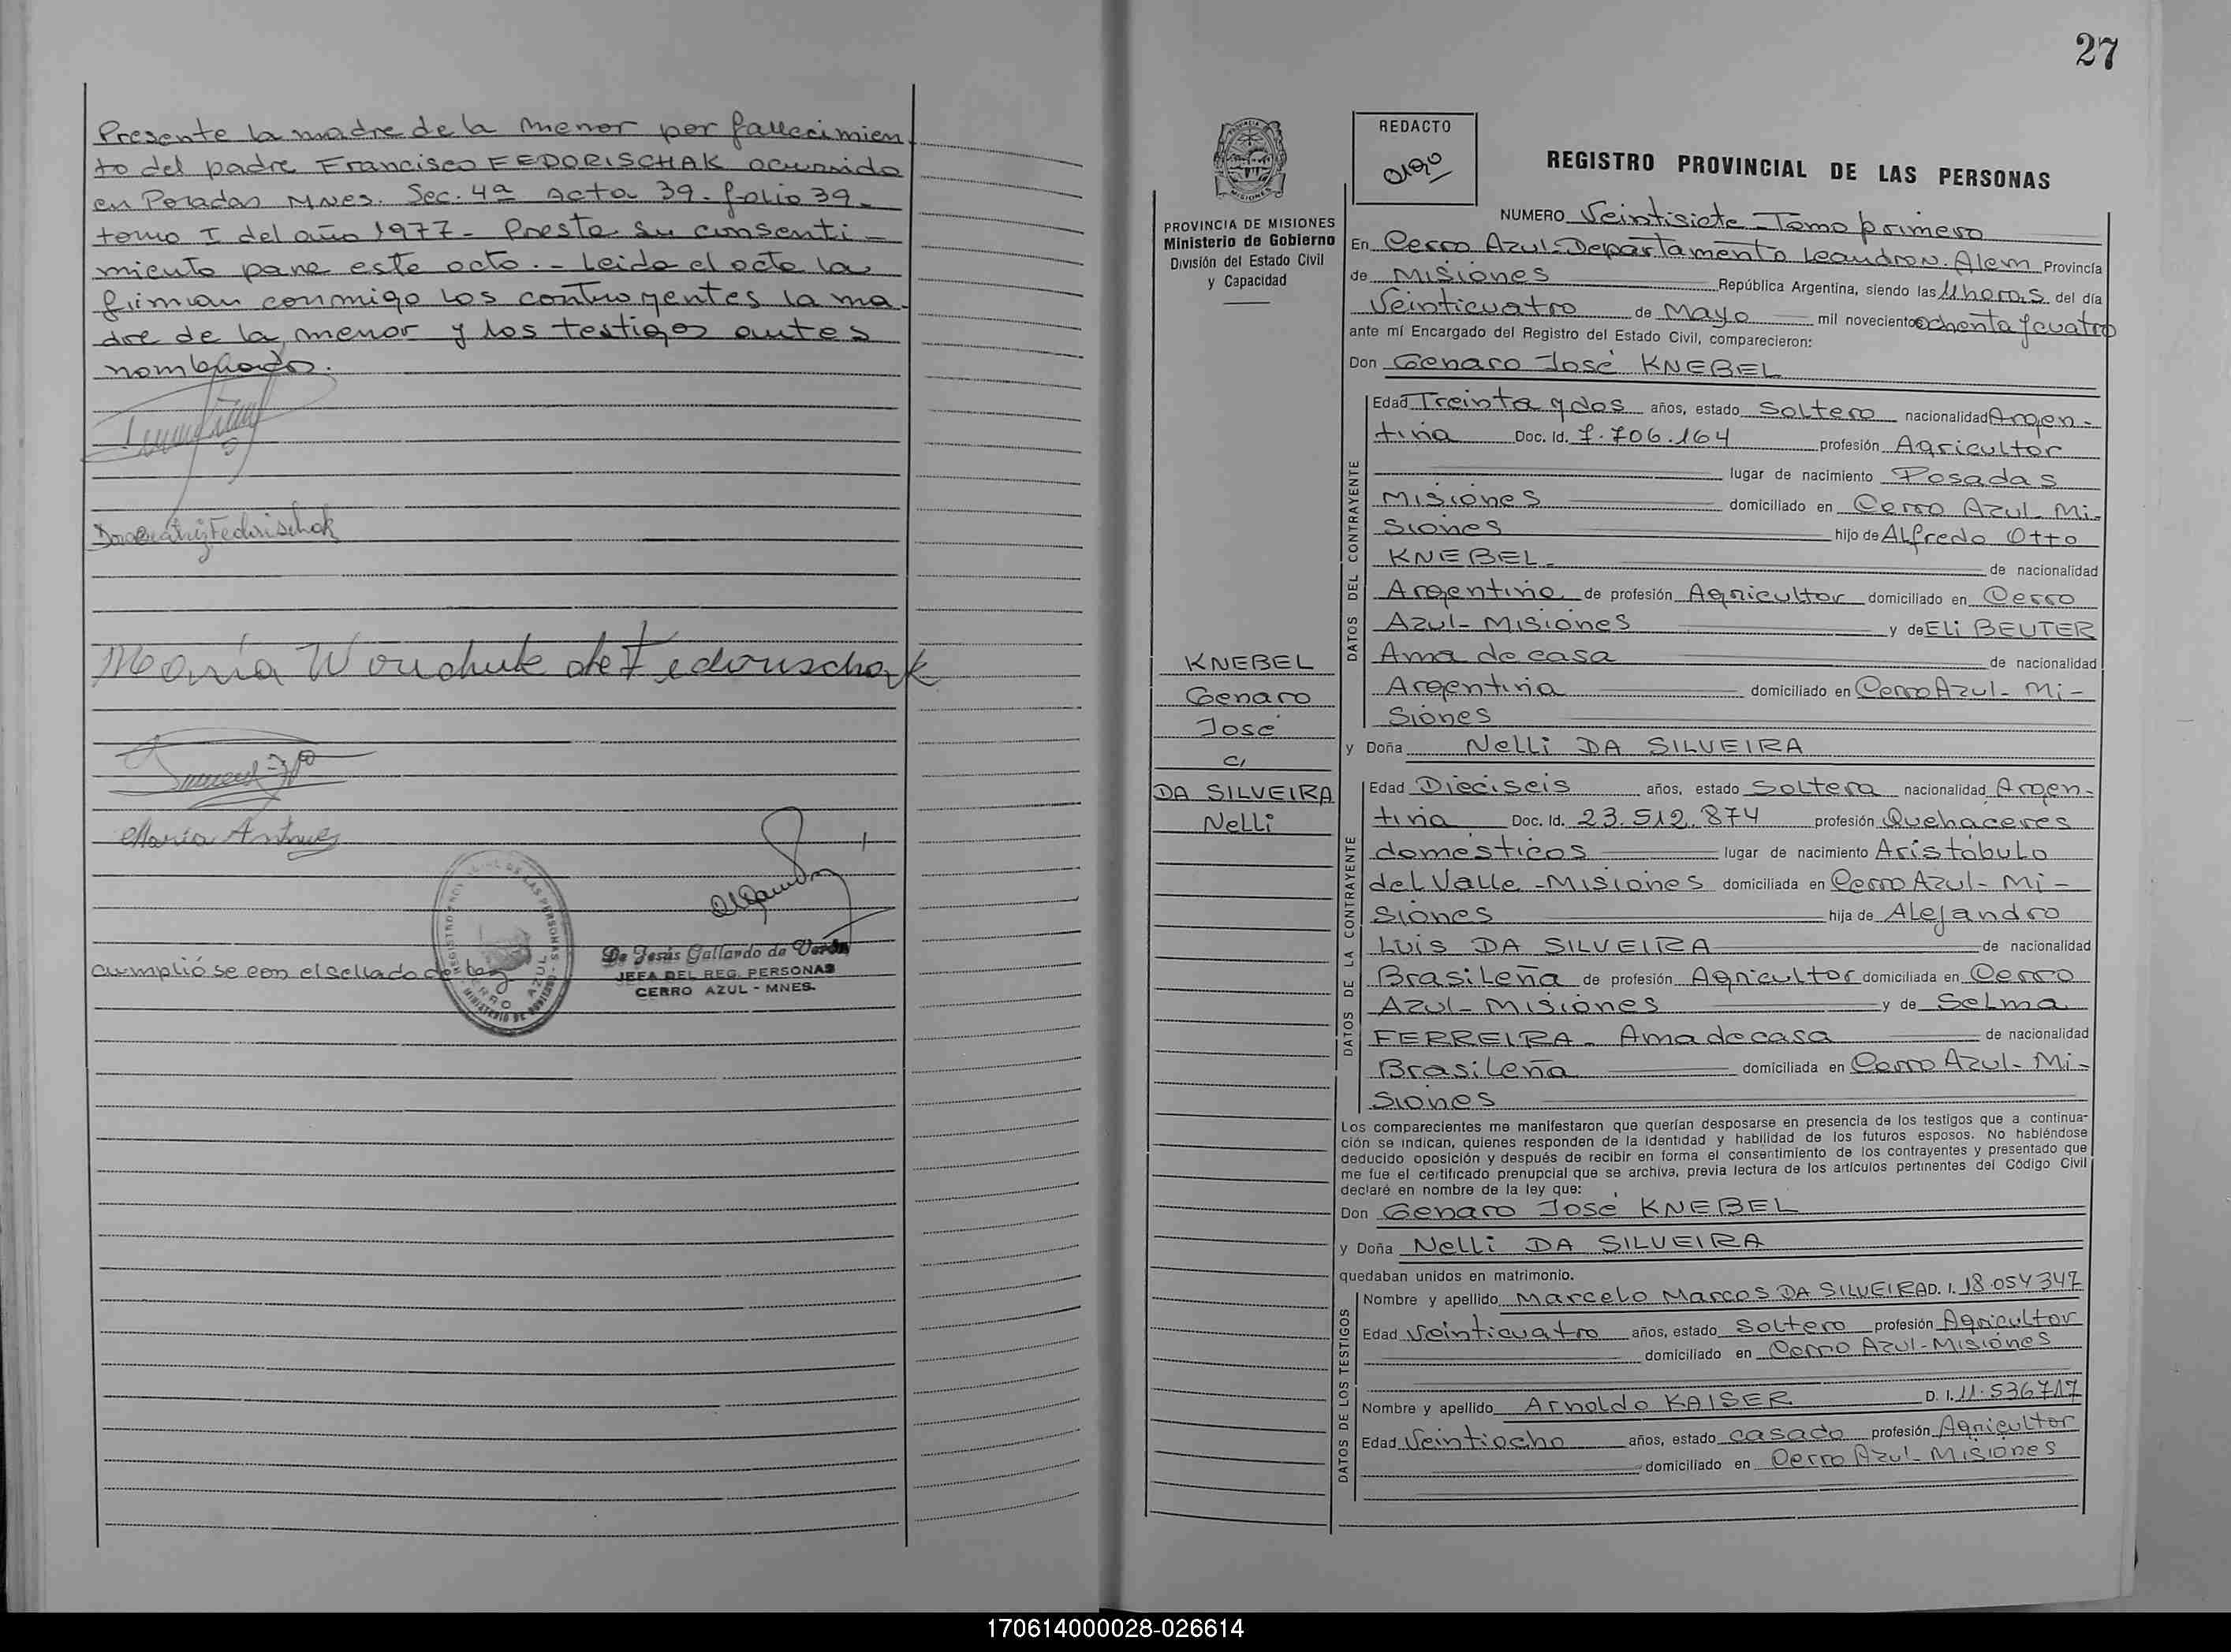 Presente la madre de la menor por fallecimien
to del padre Francisco FEDORISCHAK ocurrido
en Posadas MNes. Sec. 4ª Acta 39. folio 39.
tomo I del año 1977. Presta su consenti-
miento para este acto. - Leida el acta la
firman conmigo los contrayentes la ma-
dre de la menor y los testigos antes
nombrados.
Fedorischak
María Wonchuk de Fedorischak
María Antunez
Cumplióse con el sellado de ley
REGISTRO PROVINCIAL DE LAS PERSONAS
CERRO AZUL
MINISTERIO DE GOBIERNO
De Jesús Gallardo de Verón
JEFA DEL REG. PERSONAS
CERRO AZUL - MNES.
27
PROVINCIA DE MISIONES
Ministerio de Gobierno
División del Estado Civil
y Capacidad
KNEBEL
Genaro
José
c/
DA SILVEIRA
Nelli
REDACTO
REGISTRO PROVINCIAL DE LAS PERSONAS
NUMERO Veintisiete - Tomo primero
En Cerro Azul - Departamento Leandro N. Alem Provincia
de Misiones República Argentina, siendo las 11 horas del día
Veinticuatro de Mayo mil novecientos ochenta y cuatro
ante mí Encargado del Registro del Estado Civil, comparecieron:
Don Genaro José KNEBEL
DATOS DEL CONTRAYENTE
Edad Treinta y dos años, estado Soltero nacionalidad Argen-
tina Doc. Id. 7.706.164 profesión Agricultor
lugar de nacimiento Posadas
Misiones domiciliado en Cerro Azul Mi-
siones hijo de Alfredo Otto
KNEBEL - de nacionalidad
Argentina de profesión Agricultor domiciliado en Cerro
Azul - Misiones y de Eli BEUTER
Ama de casa de nacionalidad
Argentina domiciliado en Cerro Azul - Mi-
siones
y Doña Nelli DA SILVEIRA
DATOS DE LA CONTRAYENTE
Edad Dieciseis años, estado Soltera nacionalidad Argen-
tina Doc. Id. 23.512.874 profesión Quehaceres
domésticos lugar de nacimiento Aristobulo
del Valle - Misiones domiciliada en Cerro Azul - Mi-
siones hija de Alejandro
Luis DA SILVEIRA de nacionalidad
Brasileña de profesión Agricultor domiciliada en Cerro
Azul - Misiones y de Selma
FERREIRA - Ama de casa de nacionalidad
Brasileña domiciliada en Cerro Azul - Mi-
siones
Los comparecientes me manifestaron que querían desposarse en presencia de los testigos que a continua-
ción se indican, quienes responden de la identidad y habilidad de los futuros esposos. No habiéndose
deducido oposición y después de recibir en forma el consentimiento de los contrayentes y presentado que
me fue el certificado prenupcial que se archiva, previa lectura de los artículos pertinentes del Código Civil
declaré en nombre de la ley que:
Don Genaro José KNEBEL
y Doña Nelli DA SILVEIRA
quedaban unidos en matrimonio.
DATOS DE LOS TESTIGOS
Nombre y apellido Marcelo Marcos DA SILVEIRA D. I. 18.054347
Edad Veinticuatro años, estado Soltero profesión Agricultor
domiciliado en Cerro Azul - Misiones
Nombre y apellido Arnoldo KAISER D. I. 11.536717
Edad Veintiocho años, estado casado profesión Agricultor
domiciliado en Cerro Azul - Misiones
170614000028-026614